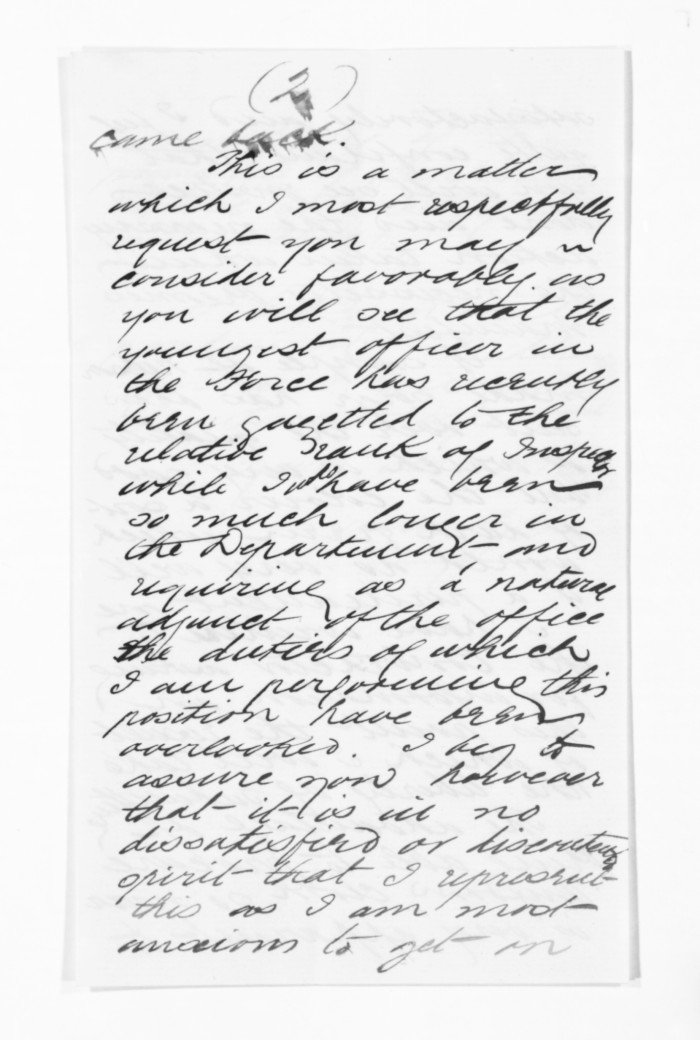 (2)
came back.
This is a matter
which I most respectfully
request you may
consider favorably as
you will see that the
youngest officer in
the Force has recently
been gazetted to the
relative rank of Inspector
while I who have been
so much longer in
the Department and
requiring as a natural
adjunct of the office
the duties of which
I am performing this
position have been
overlooked. I beg to
assure you however
that it is in no
dissatisfied or discontented
spirit that I represent
this as I am most
anxious to get on